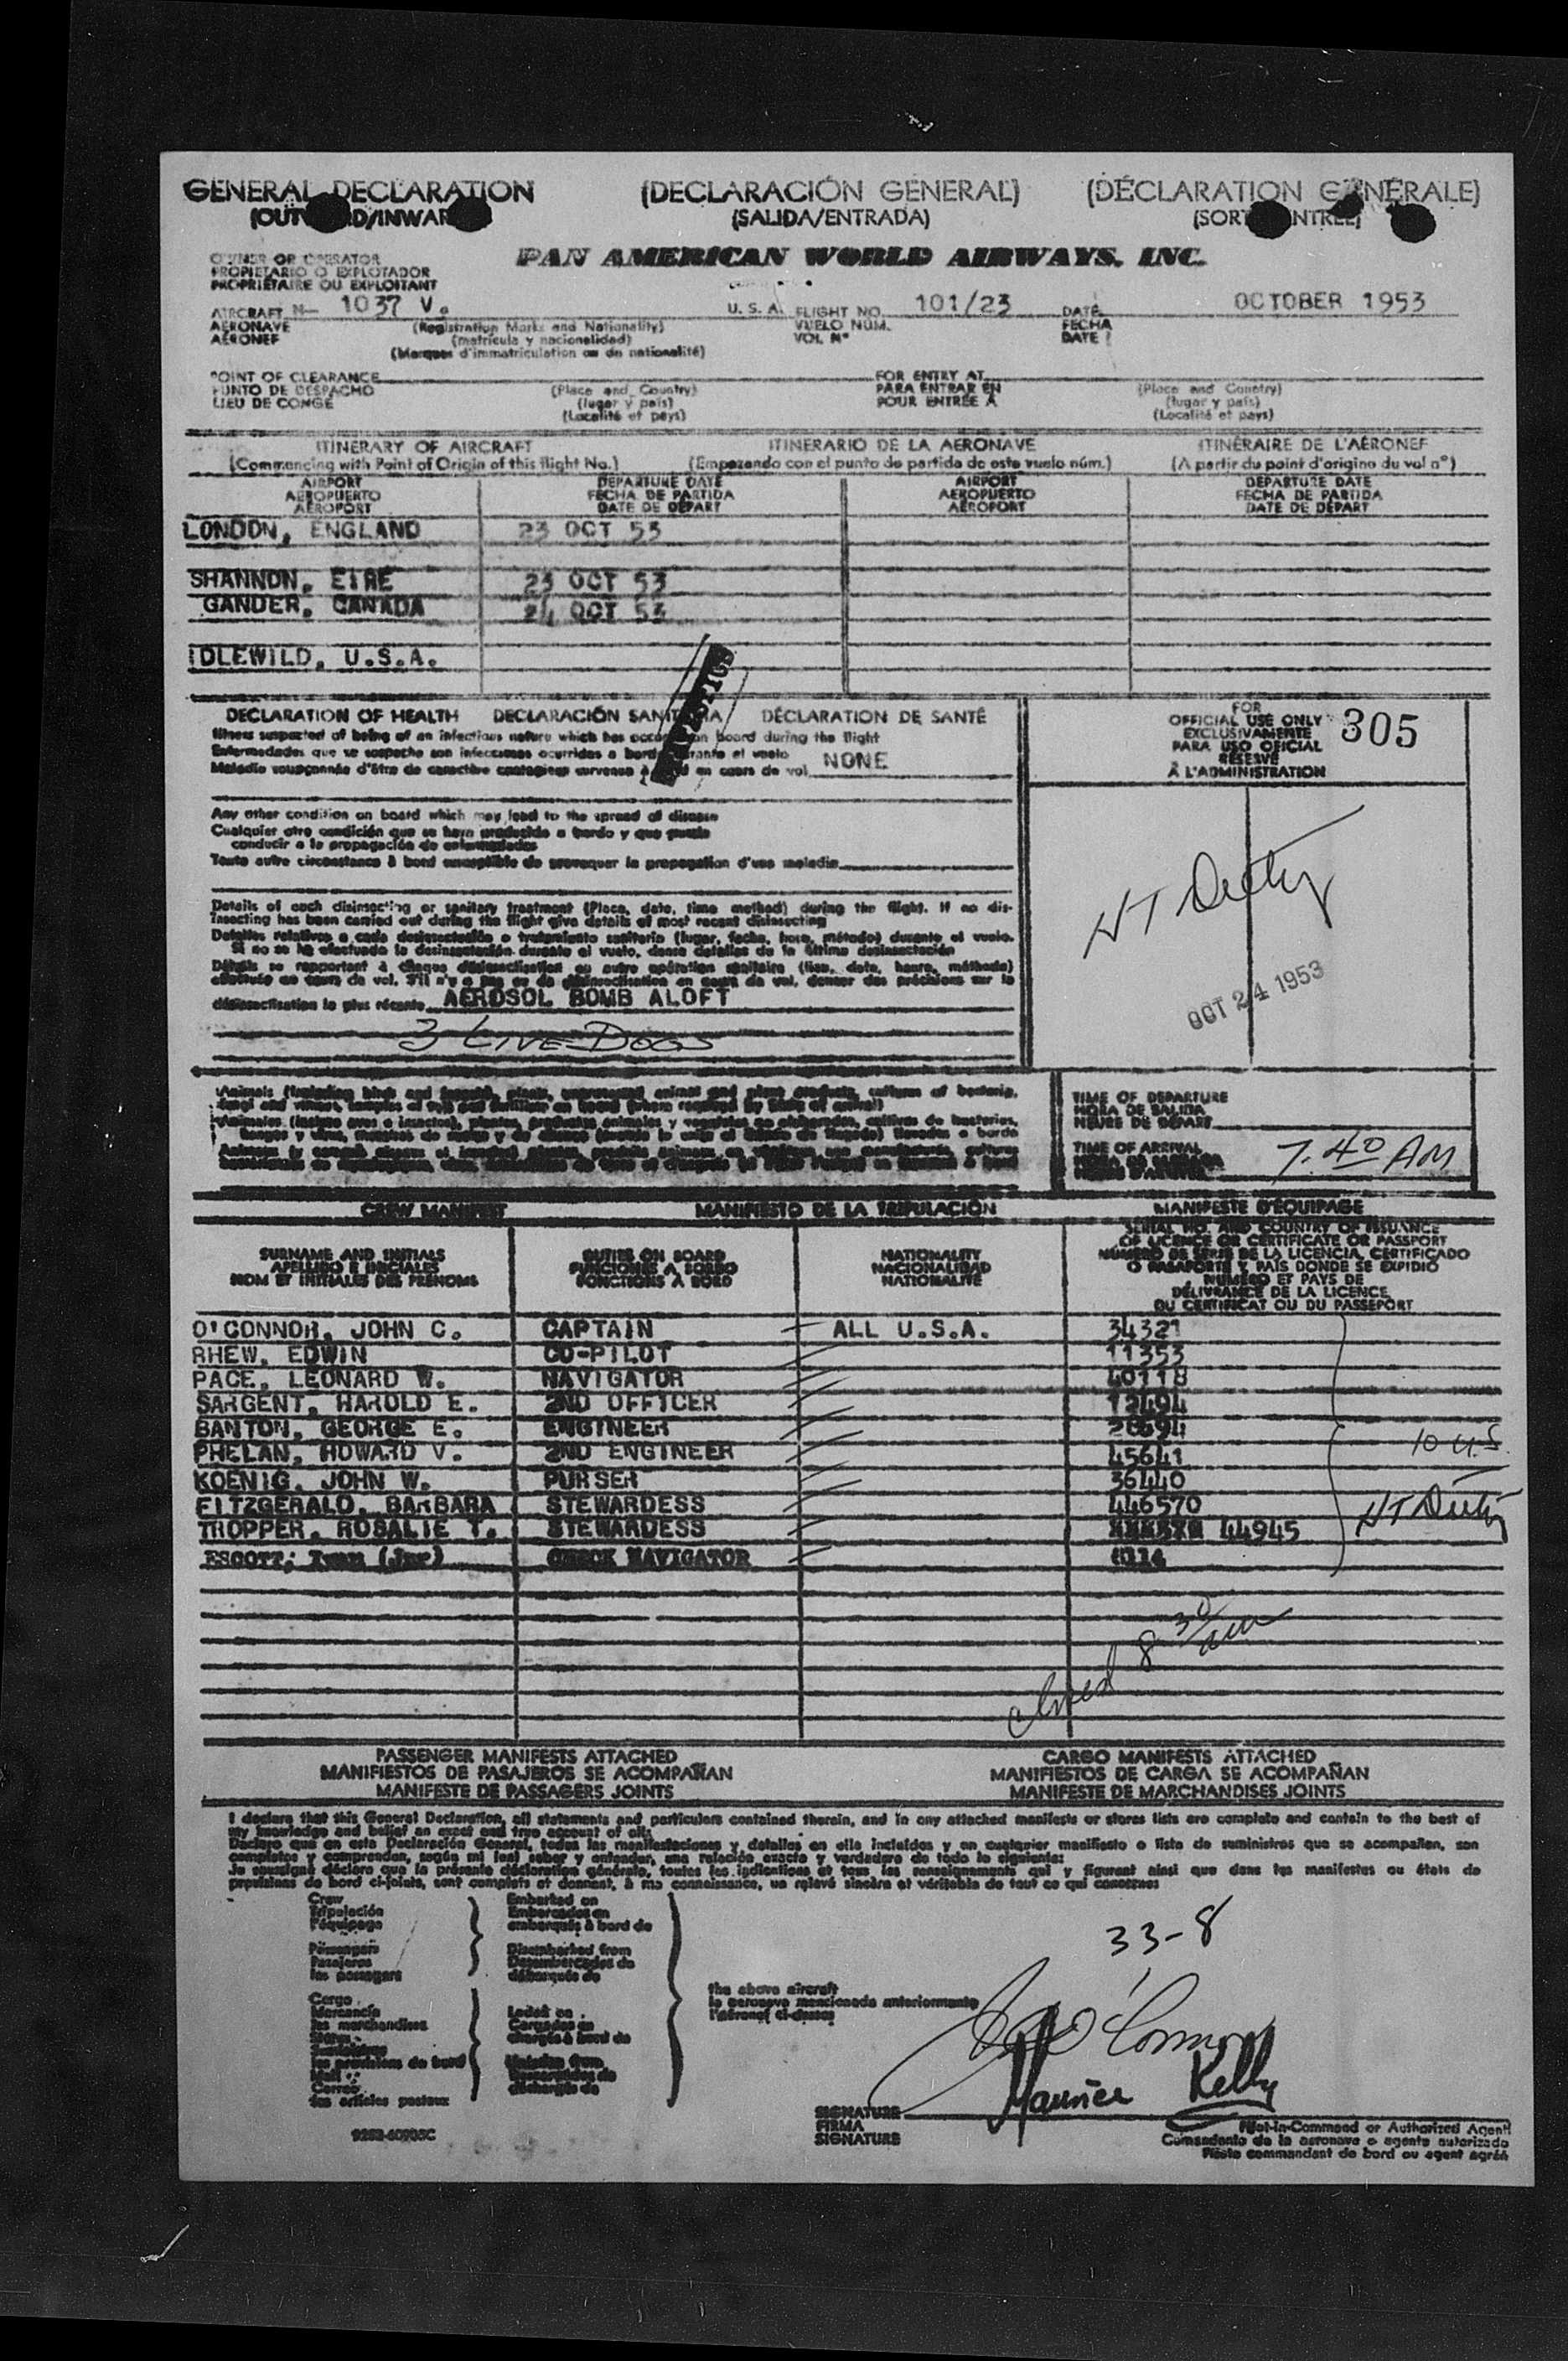 GENERAL DECLARATION (DECLARACIÓN GENERAL) (DÉCLARATION GÉNÉRALE)
(SALIDA/ENTRADA)
PAN AMERICAN WORLD AIRWAYS, INC.
OWNER OR OPERATOR
PROPIETARIO O EXPLOTADOR
PROPRIÉTAIRE OU EXPLOITANT
AIRCRAFT N— 1037 V. U. S. A. FLIGHT NO. 101/23 DATE OCTOBER 1953
AERONAVE (Registration Marks and Nationality) VUELO NÚM. FECHA
AÉRONEF (matrícula y nacionalidad) VOL Nº DATE
(Marques d'immatriculation ou de nationalité)
POINT OF CLEARANCE FOR ENTRY AT
PUNTO DE DESPACHO (Place and Country) PARA ENTRAR EN (Place and Country)
LIEU DE CONGÉ (lugar y país) POUR ENTRÉE A (lugar y país)
(Localité et pays) (Localité et pays)
ITINERARY OF AIRCRAFT ITINERARIO DE LA AERONAVE ITINÉRAIRE DE L'AÉRONEF
(Commencing with Point of Origin of this flight No.) (Empezando con el punto de partida de este vuelo núm.) (A partir du point d'origine du vol nº)
AIRPORT DEPARTURE DATE AIRPORT DEPARTURE DATE
AEROPUERTO FECHA DE PARTIDA AEROPUERTO FECHA DE PARTIDA
AÉROPORT DATE DE DÉPART AÉROPORT DATE DE DÉPART
LONDON, ENGLAND 23 OCT 53
SHANNON, EIRE 23 OCT 53
GANDER, CANADA 24 OCT 53
IDLEWILD, U.S.A.
DECLARATION OF HEALTH DECLARACIÓN SANITARIA DÉCLARATION DE SANTÉ
Illness suspected of being of an infectious nature which has occurred on board during the flight
Enfermedades que se sospeche son infecciosas ocurridas a bordo durante el vuelo
Maladie soupçonnée d'être de caractère contagieux survenue à bord en cours de vol NONE
FOR
OFFICIAL USE ONLY 305
EXCLUSIVAMENTE
PARA USO OFICIAL
RÉSERVÉ
À L'ADMINISTRATION
Any other condition on board which may lead to the spread of disease
Cualquier otra condición que se haya producido a bordo y que pueda
conducir a la propagación de enfermedades
Toute autre circonstance à bord susceptible de provoquer la propagation d'une maladie
OCT 24 1953
Details of each disinsecting or sanitary treatment (Place, date, time method) during the flight. If no dis-
insecting has been carried out during the flight give details of most recent disinsecting
Detalles relativos a cada desinsectación o tratamiento sanitario (lugar, fecha, hora, método) durante el vuelo.
Si no se ha efectuado la desinsectación durante el vuelo, dense detalles de la última desinsectación
désinsectisation la plus récente AEROSOL BOMB ALOFT
3 LIVE DOGS
TIME OF DEPARTURE
HORA DE SALIDA
HEURE DE DÉPART
TIME OF ARRIVAL 7.40 AM
CREW MANIFEST MANIFIESTO DE LA TRIPULACIÓN MANIFESTE D'ÉQUIPAGE
SURNAME AND INITIALS DUTIES ON BOARD NATIONALITY SERIAL NO. AND COUNTRY OF ISSUANCE
APELLIDO E INICIALES FUNCIONES A BORDO NACIONALIDAD OF LICENCE OR CERTIFICATE OR PASSPORT
NOM ET INITIALES DES PRÉNOMS FONCTIONS À BORD NATIONALITÉ NÚMERO DE SERIE DE LA LICENCIA, CERTIFICADO
O PASAPORTE Y PAÍS DONDE SE EXPIDIÓ
NUMÉRO ET PAYS DE
DÉLIVRANCE DE LA LICENCE
DU CERTIFICAT OU DU PASSEPORT
O'CONNOR, JOHN C. CAPTAIN ALL U.S.A. 34321
RHEW, EDWIN CO-PILOT 11353
PACE, LEONARD W. NAVIGATOR 40118
SARGENT, HAROLD E. 2ND OFFICER 12494
BANTON, GEORGE E. ENGINEER
PHELAN, HOWARD V. 2ND ENGINEER 45641 10 U.S.
KOENIG, JOHN W. PURSER 36440
FITZGERALD, BARBARA STEWARDESS 446570
TROPPER, ROSALIE T. STEWARDESS 44945
ESCOTT, CHECK NAVIGATOR
8 30 am
PASSENGER MANIFESTS ATTACHED CARGO MANIFESTS ATTACHED
MANIFIESTOS DE PASAJEROS SE ACOMPAÑAN MANIFIESTOS DE CARGA SE ACOMPAÑAN
MANIFESTE DE PASSAGERS JOINTS MANIFESTE DE MARCHANDISES JOINTS
I declare that this General Declaration, all statements and particulars contained therein, and in any attached manifests or stores lists are complete and contain to the best of
my knowledge and belief an exact and true account of all:
Declaro que en esta Declaración General, todas las manifestaciones y detalles en ella incluídos y en cualquier manifiesto o lista de suministros que se acompañen, son
completos y comprenden, según mi leal saber y entender, una relación exacta y verdadera de todo lo siguiente:
Je soussigné déclare que la présente déclaration générale, toutes les indications et tous les renseignements qui y figurent ainsi que dans les manifestes ou états de
provisions de bord ci-joints, sont complets et donnent, à ma connaissance, un relevé sincère et véritable de tout ce qui concerne:
Crew Embarked on
Tripulación Embarcados en
l'équipage embarqués à bord de
33-8
Passengers Disembarked from
Pasajeros Desembarcados de
les passagers débarqués de
the above aircraft
la aeronave mencionada anteriormente
l'aéronef ci-dessus
Cargo Laden on
Mercancía Cargados en
les marchandises chargés à bord de
les provisions de bord
Mail
Correo
les articles postaux
O'Connor
Maurice Kelly
SIGNATURE
FIRMA
SIGNATURE
Pilot-in-Command or Authorized Agent
Comandante de la aeronave o agente autorizado
Pilote commandant de bord ou agent agréé